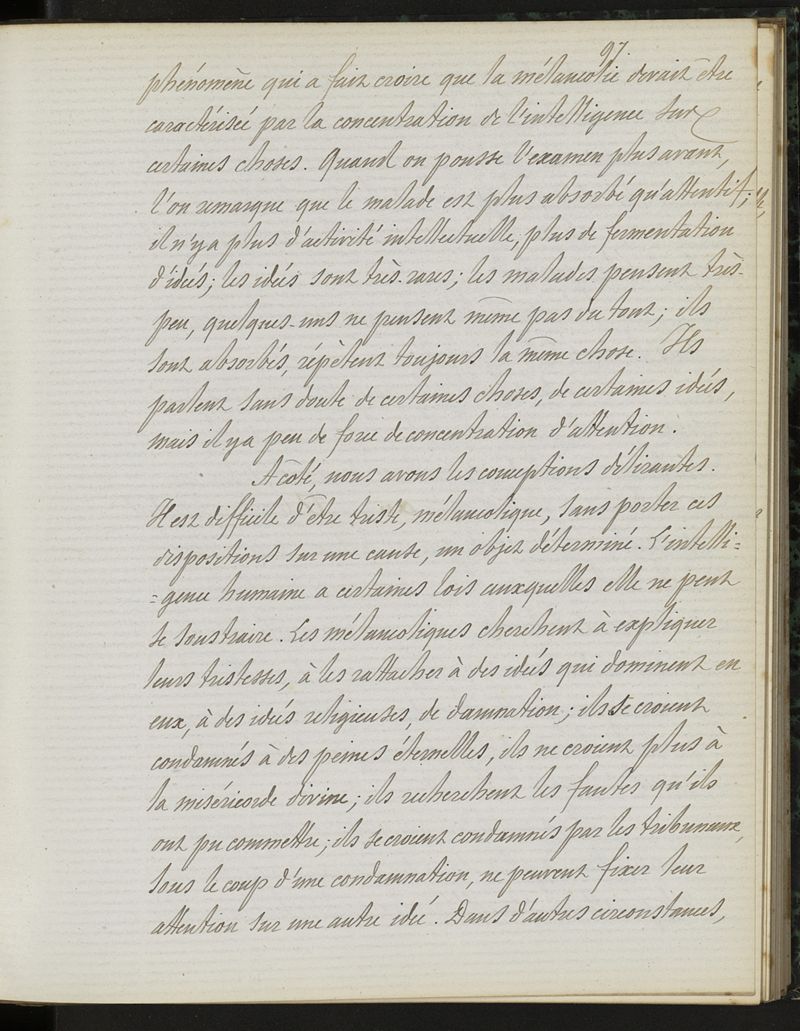 97.
phénomène qui a fait croire que la mélancolie devait être
caractérisée par la concentration de l'intelligence sur
certaines choses. Quand on pousse l'examen plus avant,
l'on remarque que le malade est plus absorbé qu'attentif;
il n'y a plus d'activité intellectuelle, plus de fermentation
d'idées; les idées sont très-rares; les malades pensent très-
peu, quelques-uns ne pensent même pas du tout; ils
sont absorbés, répètent toujours la même chose. Ils
parlent sans doute de certaines choses, de certaines idées,
mais il y a peu de force de concentration d'attention.
A côté, nous avons les conceptions délirantes.
Il est difficile d'être triste, mélancolique, sans porter ces
dispositions sur une cause, un objet déterminé. L'intelli=
=gence humaine a certaines lois auxquelles elle ne peut
se soustraire. Les mélancoliques cherchent à expliquer
leurs tristesses, à les rattacher à des idées qui dominent en
eux, à des idées religieuses, de damnation; ils se croient
condamnés à des peines éternelles, ils ne croient plus à
la miséricorde divine; ils recherchent les fautes qu'ils
ont pu commettre; ils se croient condamnés par les tribunaux,
sous le coup d'une condamnation, ne peuvent fixer leur
attention sur une autre idée. Dans d'autres circonstances,